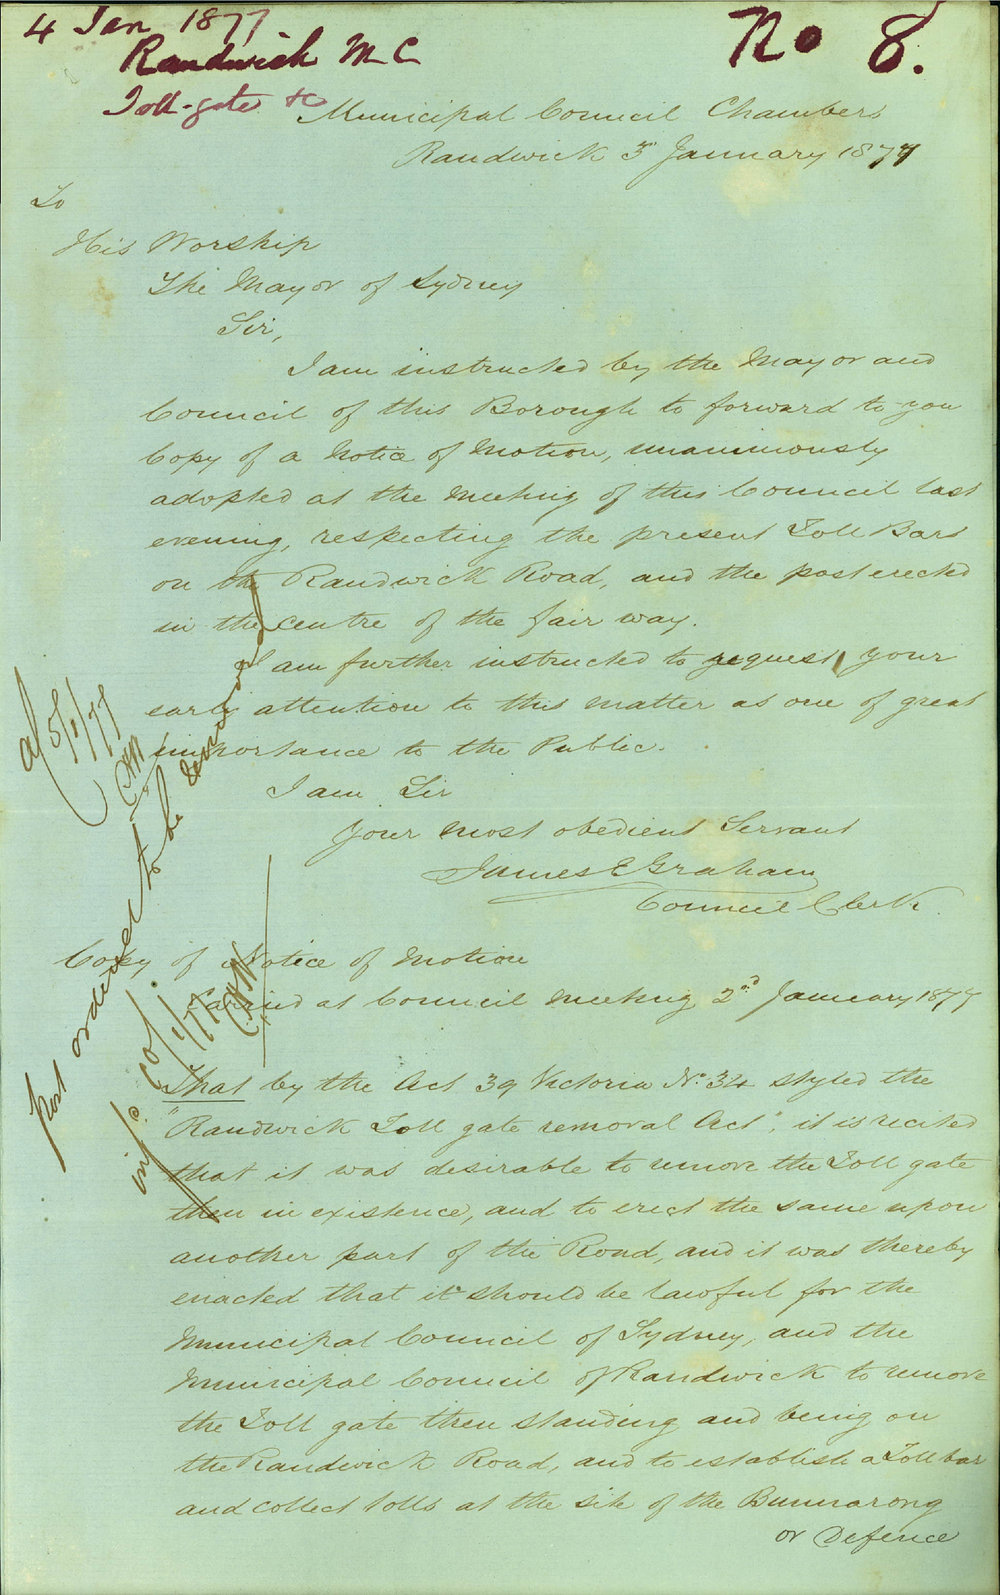 4 Jan 1877
Randwick M C
Toll-gate &c
No 8.
Municipal Council Chambers
Randwick 3rd January 1877
To
His Worship
The Mayor of Sydney
Sir,
I am instructed by the Mayor and
Council of this Borough to forward to you
Copy of a Notice of Motion, unanimously
adopted at the Meeting of this Council last
evening, respecting the present Toll Bars
on the Randwick Road, and the post erected
in the centre of the fair way.
I am further instructed to request your
early attention to this matter as one of great
importance to the Public.
I am Sir
Your most obedient Servant
James E Graham
Council Clerk.
5/1/77
Post ordered to be removed
Copy of Notice of Motion
Carried at Council Meeting 2nd January 1877
That by the Act 39 Victoria No. 34 styled the
"Randwick Toll gate removal Act", it is recited
that it was desirable to remove the Toll gate
then in existence, and to erect the same upon
another part of the Road, and it was thereby
enacted that it should be lawful for the
Municipal Council of Sydney, and the
Municipal Council of Randwick to remove
the Toll gate then standing and being on
the Randwick Road, and to establish a Toll bar
and collect tolls at the site of the Bunnarong
or Defence